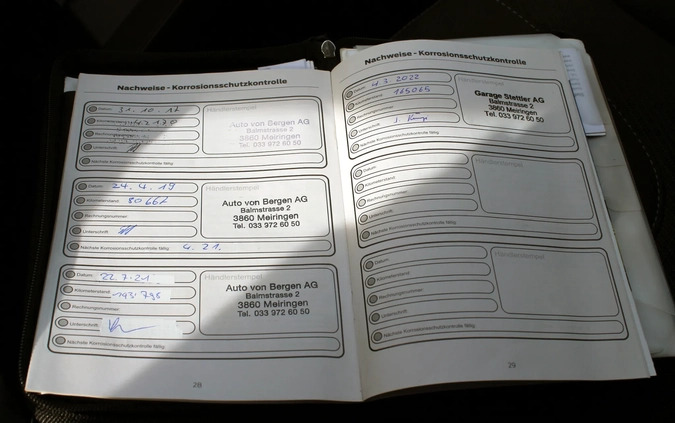 Nachweise - Korrosionsschutzkontrolle
Datum 31. 10. 17
Kilometerstand
Rechnungsnummer
Unterschrift
Nächste Korrosionsschutzkontrolle fällig:
Händlerstempel
Auto von Bergen AG
Balmstrasse 2
3860 Meiringen
Tel. 033 972 60 50
Datum 24. 4. 19
Kilometerstand 80662
Rechnungsnummer
Unterschrift
Nächste Korrosionsschutzkontrolle fällig: 4. 21.
Händlerstempel
Auto von Bergen AG
Balmstrasse 2
3860 Meiringen
Tel. 033 972 60 50
Datum 22. 7. 21
Kilometerstand 143'795
Rechnungsnummer
Unterschrift
Nächste Korrosionsschutzkontrolle fällig:
Händlerstempel
Auto von Bergen AG
Balmstrasse 2
3860 Meiringen
Tel. 033 972 60 50
28
Nachweise - Korrosionsschutzkontrolle
Datum 4.3. 2022
Kilometerstand 165065
Rechnungsnummer
Unterschrift
Nächste Korrosionsschutzkontrolle fällig:
Händlerstempel
Garage Stettler AG
Balmstrasse 2
3860 Meiringen
Tel. 033 972 60 50
Datum
Kilometerstand
Rechnungsnummer
Unterschrift
Nächste Korrosionsschutzkontrolle fällig:
Händlerstempel
Datum
Kilometerstand
Rechnungsnummer
Unterschrift
Nächste Korrosionsschutzkontrolle fällig:
Händlerstempel
29